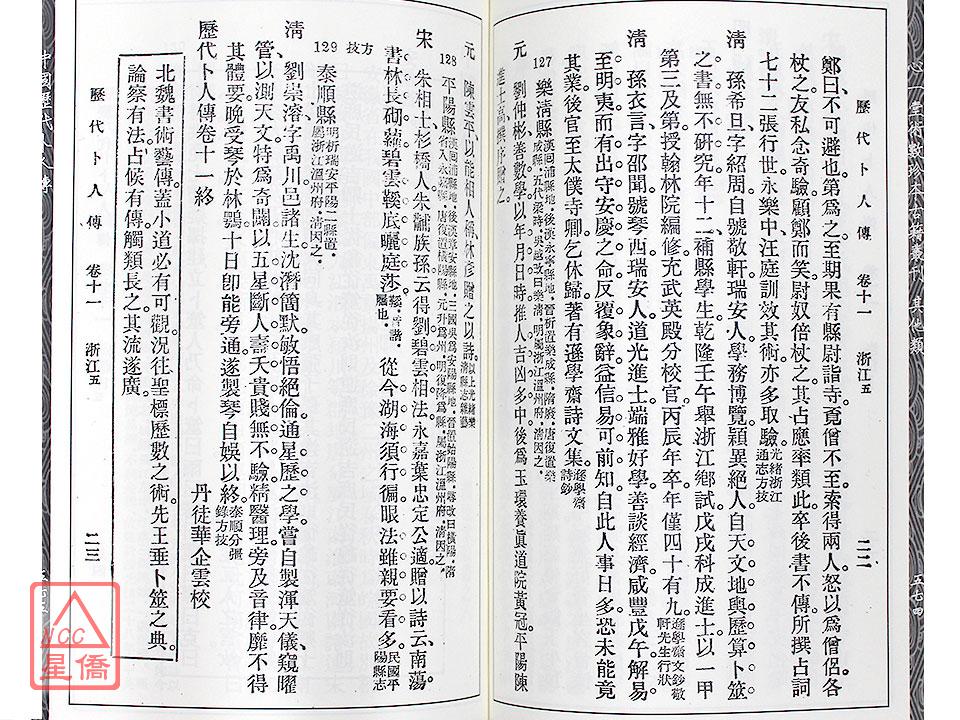 歷代卜人傳 卷十一 浙江五 二二
鄭曰、不可避也。第爲之、至期果有縣尉詣寺、竟僧不至、索得兩人、怒以爲僧侶、各
杖之、友私念奇驗、顧鄭而笑、尉奴倍杖之、其占應率類此、卒後書不傳、所撰占詞
七十二張行世、永樂中、汪庭訓效其術、亦多取驗。光緒浙江通志方技
清 孫希旦、字紹周、自號敬軒、瑞安人、學務博覽、穎異絕人、自天文地輿、歷算卜筮
之書、無不研究、年十二、補縣學生、乾隆壬午舉浙江鄉試、戊戌科成進士、以一甲
第三及第、授翰林院編修、充武英殿分校官、丙辰年卒、年僅四十有九。遜學齋文鈔敬軒先生行狀
清 孫衣言、字邵聞、號琴西、瑞安人、道光進士、端雅好學、善談經濟、咸豐戊午、解易
至明夷、而有出守安慶之命、反覆象辭、益信易可前知、自此人事日多、恐未能竟
其業、後官至太僕寺卿、乞休歸、著有遜學齋詩文集。遜學齋詩鈔
127 樂清縣 漢回浦縣地、後漢永寧縣地、晉析置樂成縣、隋廢、唐復置樂成縣、五代梁時、吳越改曰樂清、明屬浙江溫州府、清因之。
元 劉仲彬、善數學、以年月日時、推人吉凶多中、後爲玉環養眞道院黃冠、平陽陳
歷代卜人傳 卷十一 浙江五 二三
元 陳雲平、以能相人稱、林彥
128 平陽縣
宋 朱相士、杉橋人、朱黼族孫、云得劉碧雲相法、永嘉葉忠定公適贈以詩云、南蕩
書林長砌蘿、碧雲輟底曬庭莎、從今湖海須行徧、眼法雖親要看多。民國平陽縣志方技
129 泰順縣 明析瑞安平陽二縣置、屬浙江溫州府、清因之。
清 劉崇溶、字禹川、邑諸生、沈潛簡默、敏悟絕倫、通星歷之學、嘗自製渾天儀、窺曜
管以測天文、特爲奇闢、以五星斷人壽夭貴賤、無不驗、精醫理、旁及音律、靡不得
其體要、晚受琴於林鶚、十日卽能旁通、遂製琴自娛以終。泰順分疆錄方技
歷代卜人傳卷十一終 丹徒華企雲校
北魏書術藝傳、蓋小道必有可觀、況往聖標歷數之術、先王垂卜筮之典。
論察有法、占候有傳、觸類長之、其流遂廣。
NCC
星僑